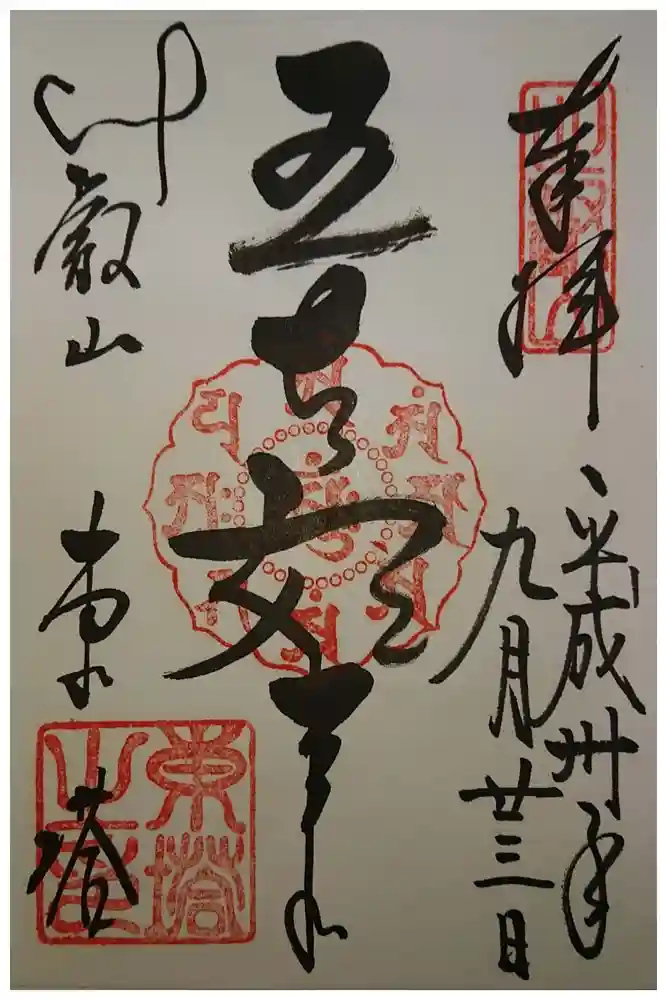 奉拝
平成卅年
九月廿三日
五智如来
比叡山
東塔
東塔